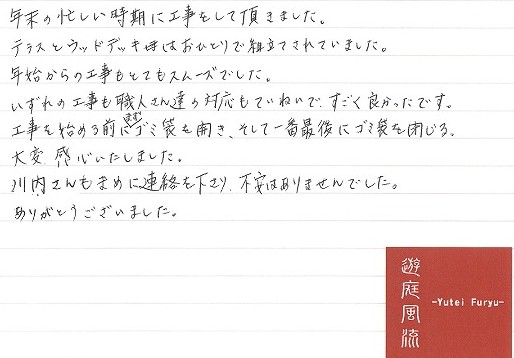 年末の忙しい時期に工事をして頂きました。
テラスとウッドデッキ共はおひとりで組立てされていました。
年始からの工事もとてもスムーズでした。
いずれの工事も職人さん達の対応もていねいで、すごく良かったです。
工事を始める前にまずゴミ袋を開き、そして一番最後にゴミ袋を閉じる。
大変、感心いたしました。
川内さんもまめに連絡を下さり、不安はありませんでした。
ありがとうございました。
遊庭風流
-Yutei Furyu-